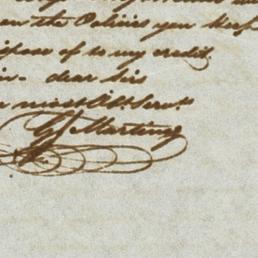 on the Policies you keep
ispose of to my credit
in dear sir
r most Obt Servt
G Martinez